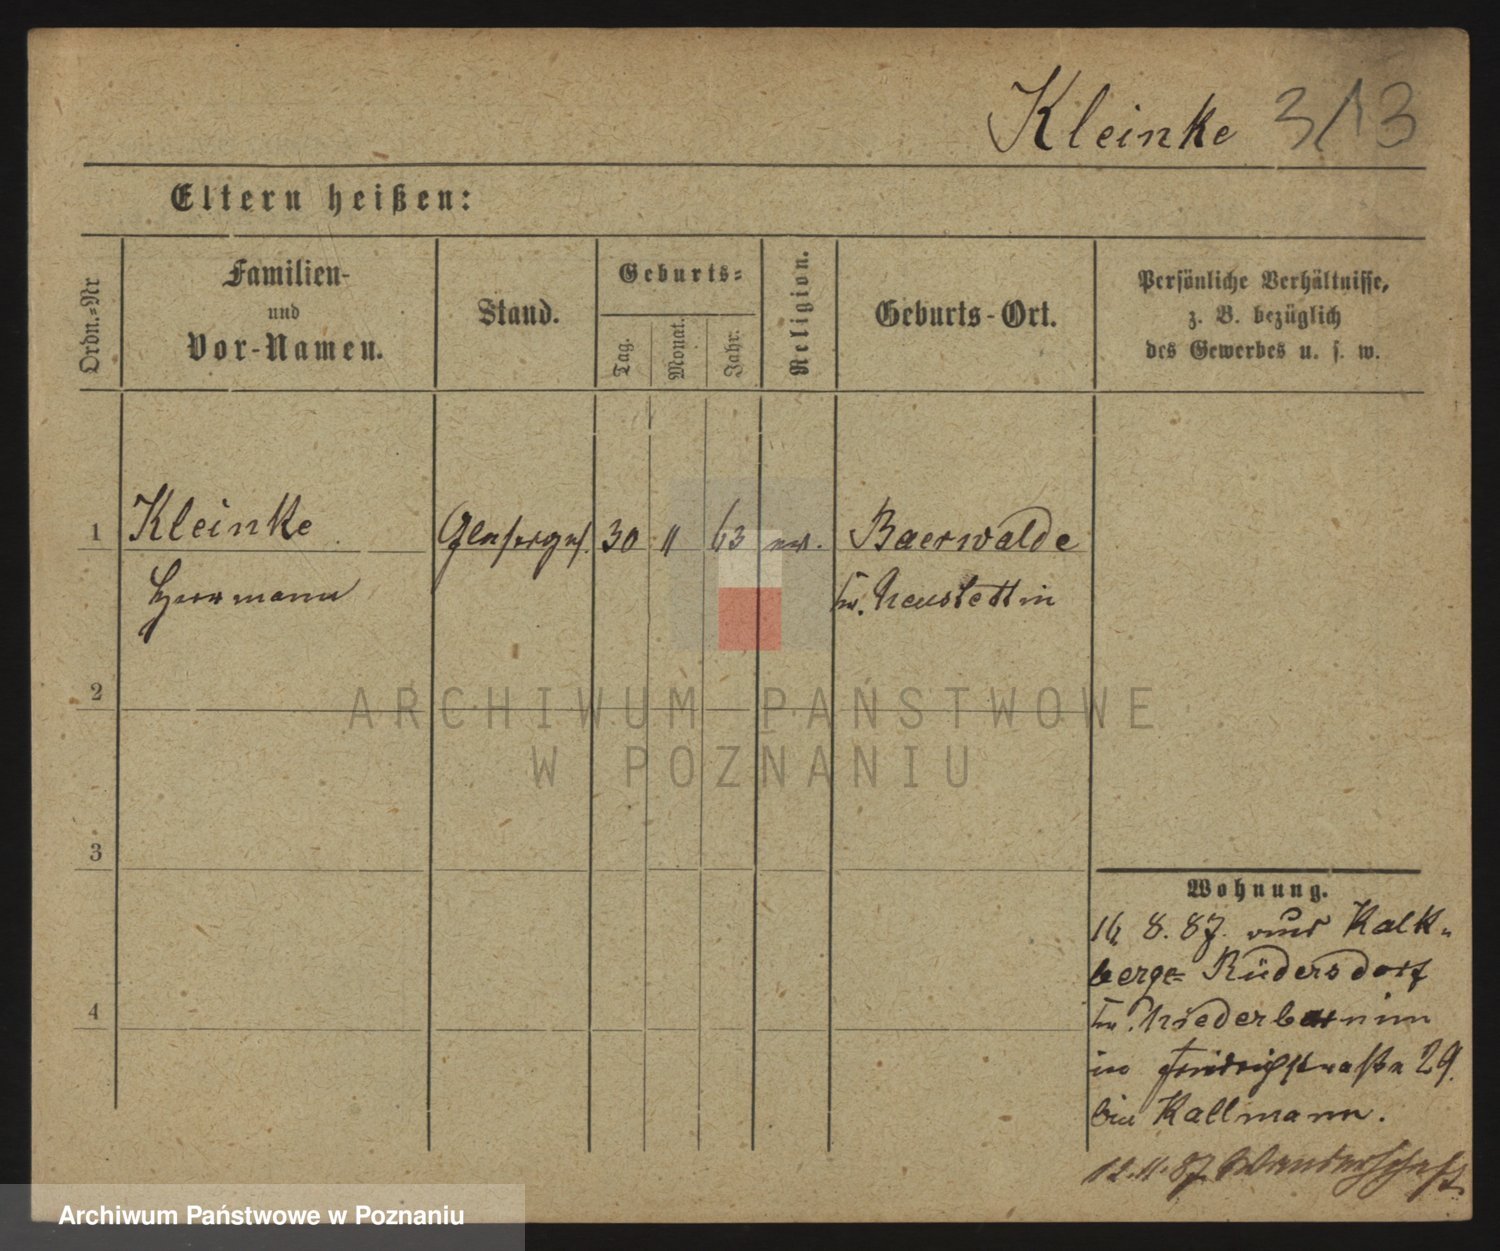 Kleinke 313
Eltern heißen:
Ordn.-Nr
Familien-
und
Vor-Namen.
Stand.
Geburts-
Tag.
Monat.
Jahr.
Religion.
Geburts-Ort.
Persönliche Verhältnisse,
z. B. bezüglich
des Gewerbes u. s. w.
1 Kleinke Glaserges. 30 11 63 ev. Baerwalde
Herrmann Kr. Neustettin
2
ARCHIWUM PAŃSTWOWE
W POZNANIU
3
Wohnung.
8. 87. aus Kalk-
berge- Rüdersdorf
Kr. Niederbarnim
in Friedrichstraße 29.
bei Kallmann.
12.11.87 Wanderschaft
4
Archiwum Państwowe w Poznaniu